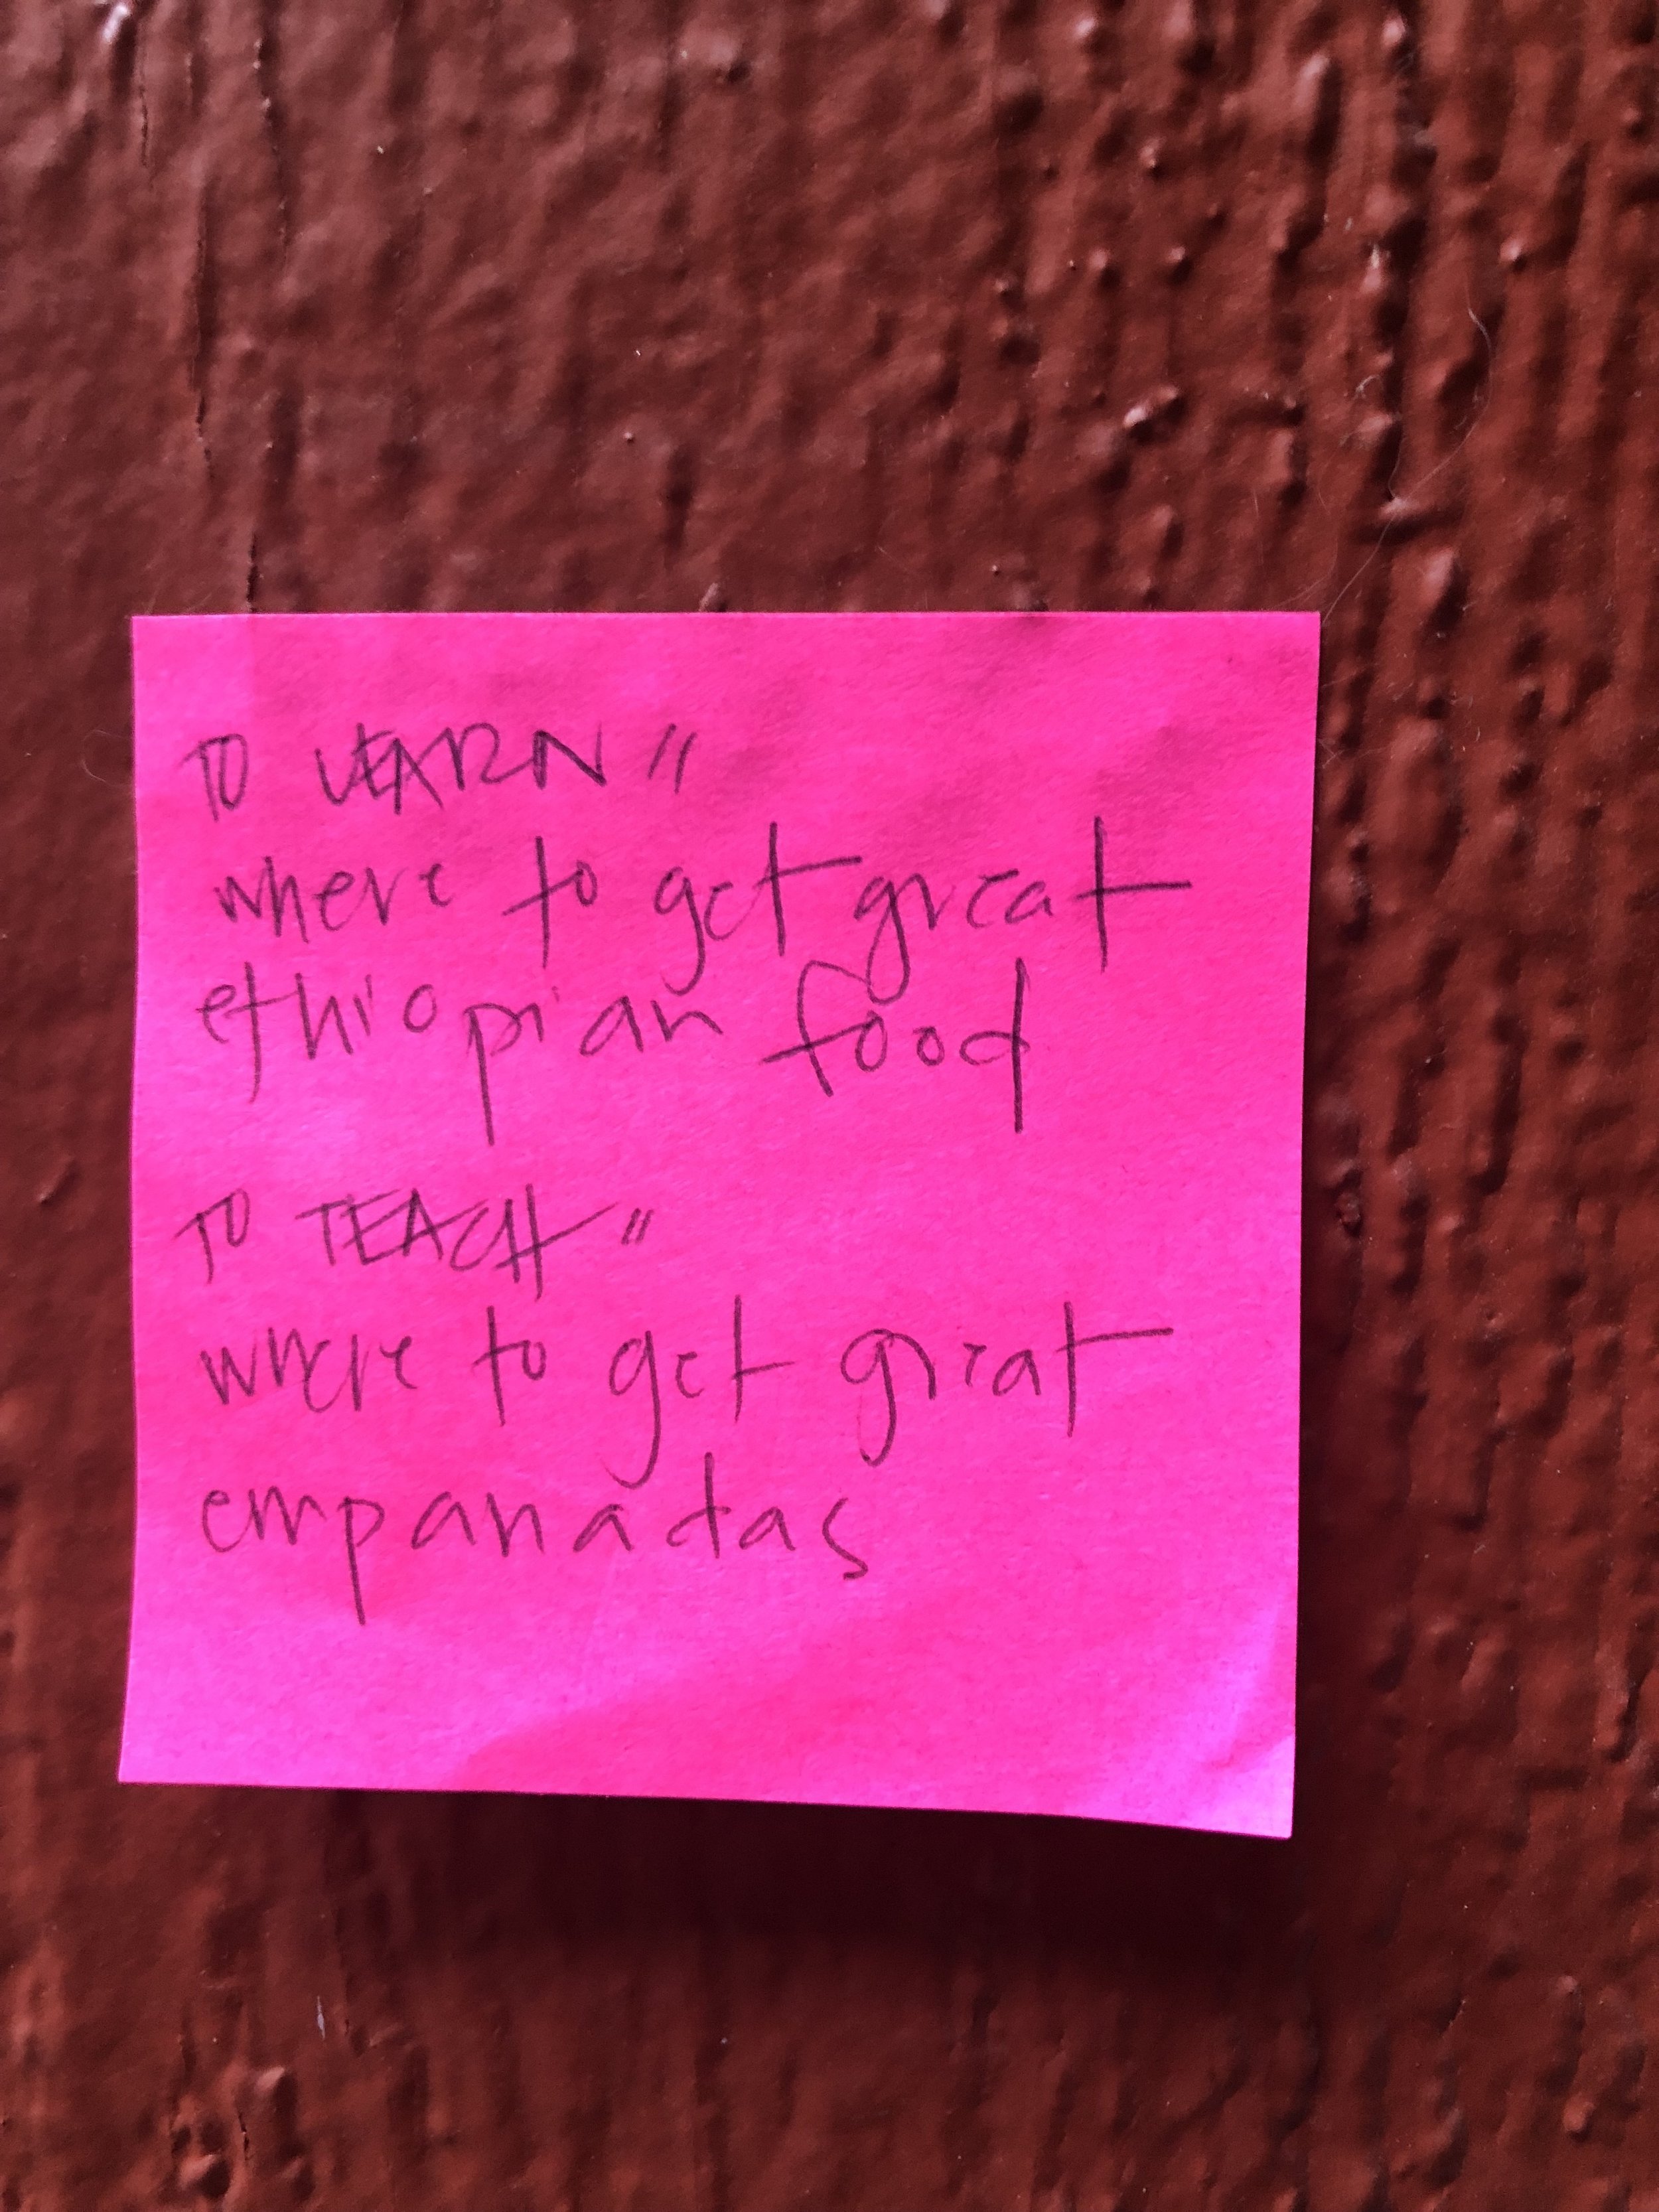 TO LEARN //
where to get great
ethiopian food
TO TEACH //
where to get great
empanadas